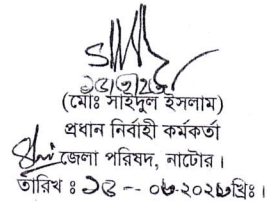 (মোঃ সাইদুল ইসলাম)
প্রধান নির্বাহী কর্মকর্তা
জেলা পরিষদ, নাটোর।
তারিখ ঃ ১৫ -- ০৬-২০২৬খ্রিঃ।